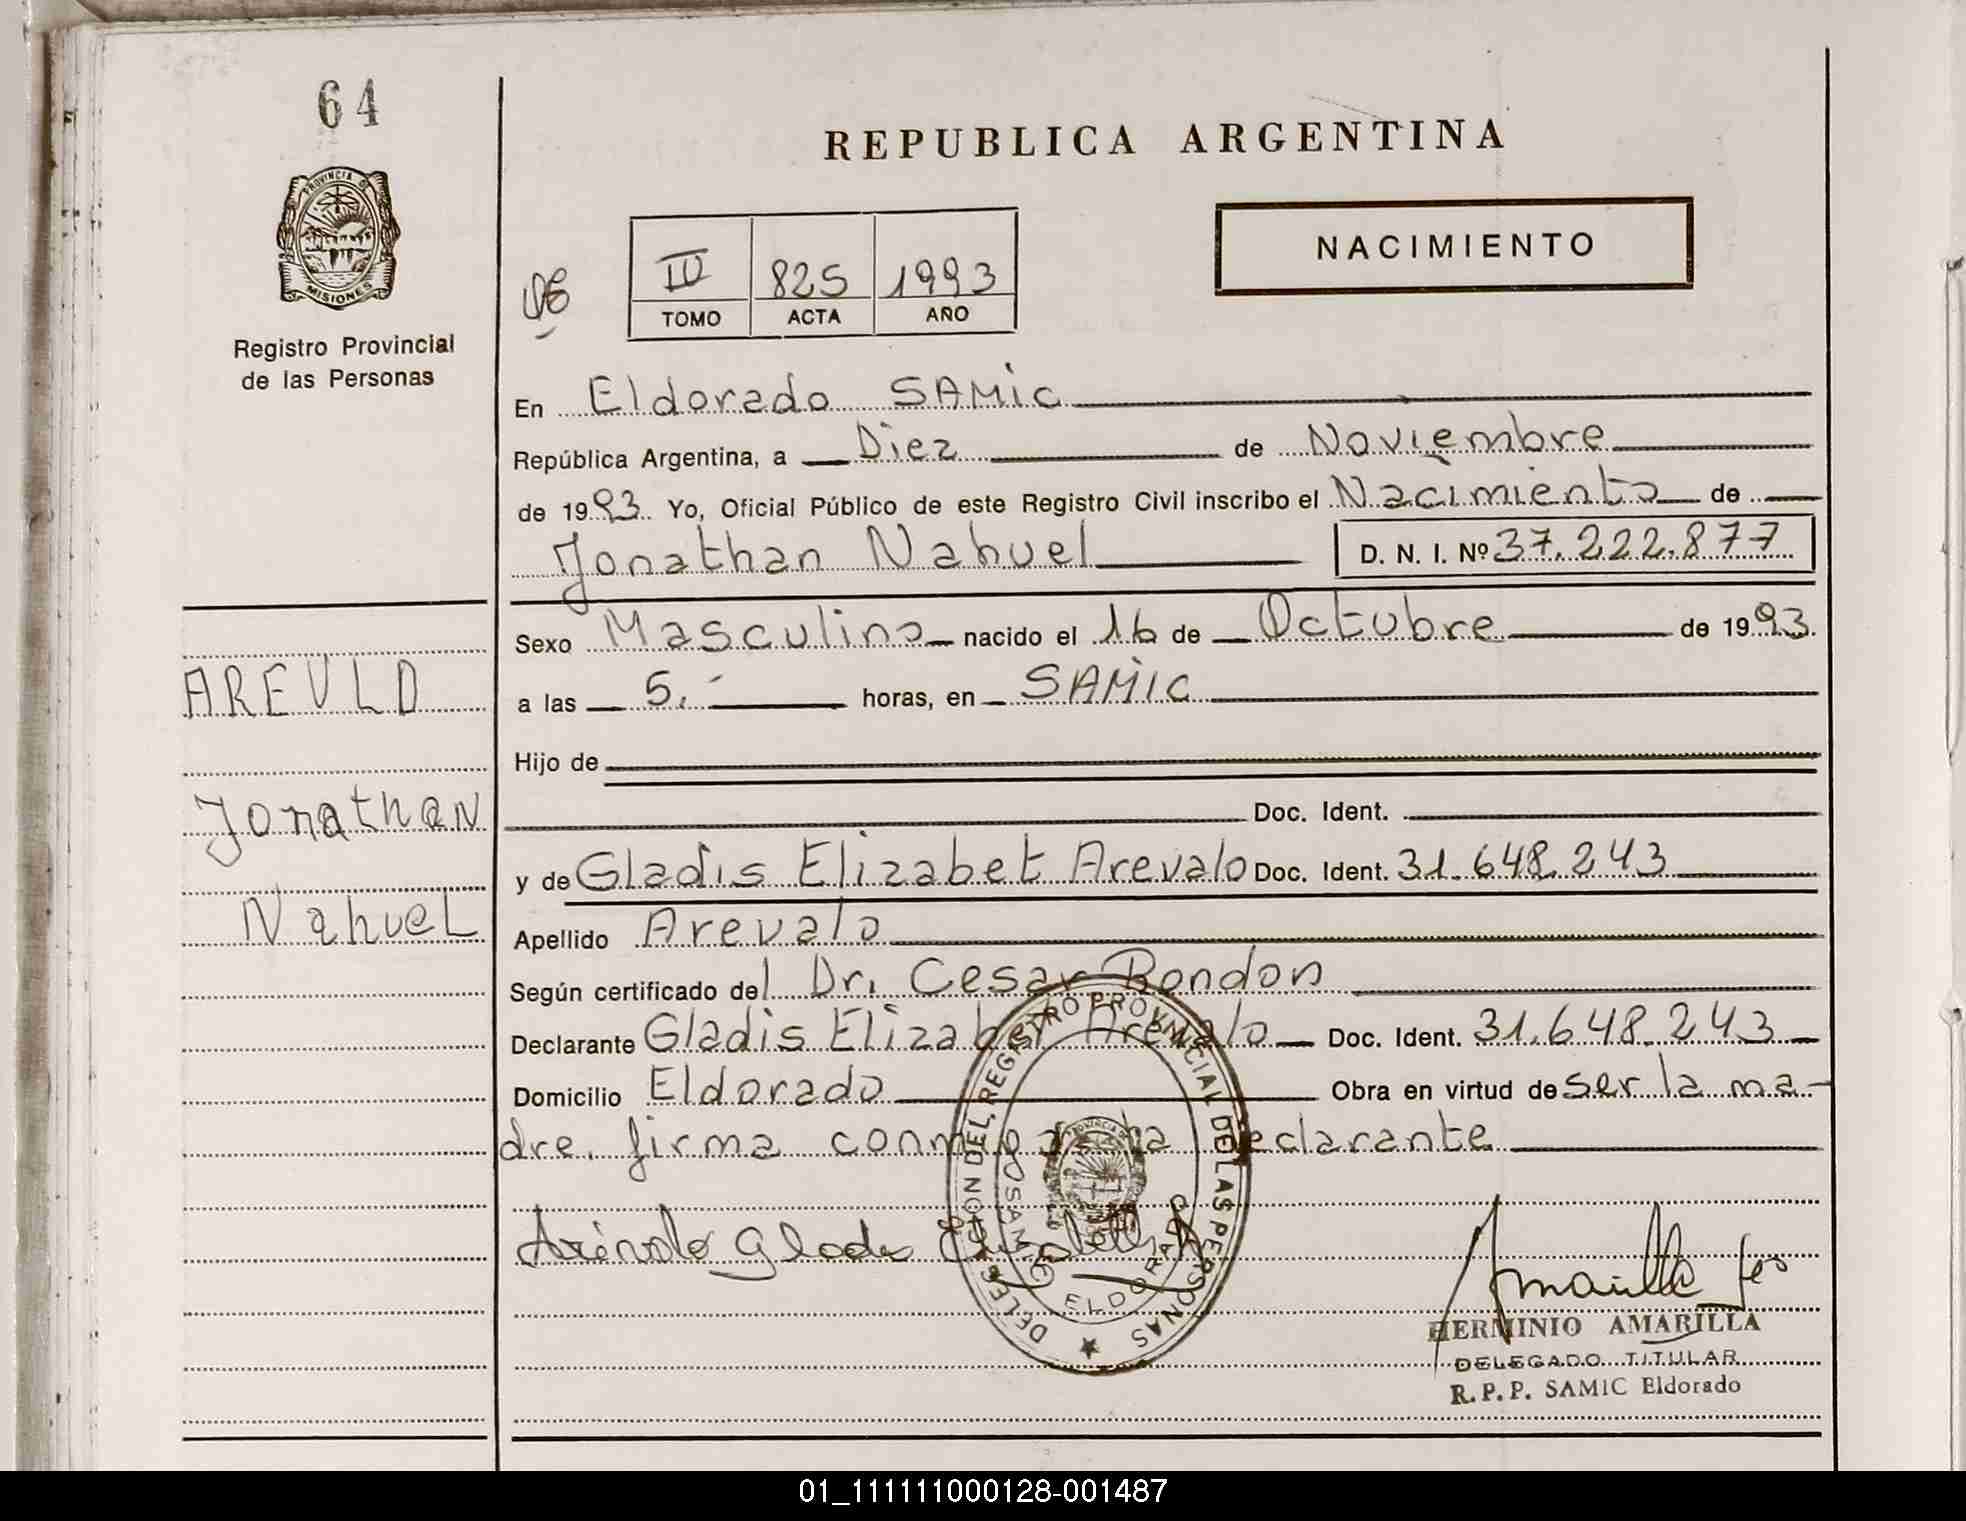 64
REPUBLICA ARGENTINA
PROVINCIA DE
MISIONES
NACIMIENTO
III 825 1993
TOMO ACTA AÑO
Registro Provincial
de las Personas
En Eldorado SAMic
República Argentina, a Diez de Noviembre
de 1993. Yo, Oficial Público de este Registro Civil inscribo el Nacimiento de
Jonathan Nahuel D. N. I. Nº 37.222.877
Sexo Masculino nacido el 16 de Octubre de 1993.
a las 5.- horas, en SAMIC
AREVLO
Hijo de
Jonathan
Doc. Ident.
y de Gladis Elizabet Arevalo Doc. Ident. 31.648.243
Nahuel
Apellido Arevalo
Según certificado del Dr. Cesar Rondon
Declarante Gladis Elizabet Arevalo Doc. Ident. 31.648.243
Domicilio Eldorado Obra en virtud de ser la ma-
dre. firma conmigo la declarante
DELEGACION DEL REGISTRO PROVINCIAL DE LAS PERSONAS
SAMIC ELDORADO
HERMINIO AMARILLA
DELEGADO TITULAR
R. P. P. SAMIC Eldorado
01_111111000128-001487